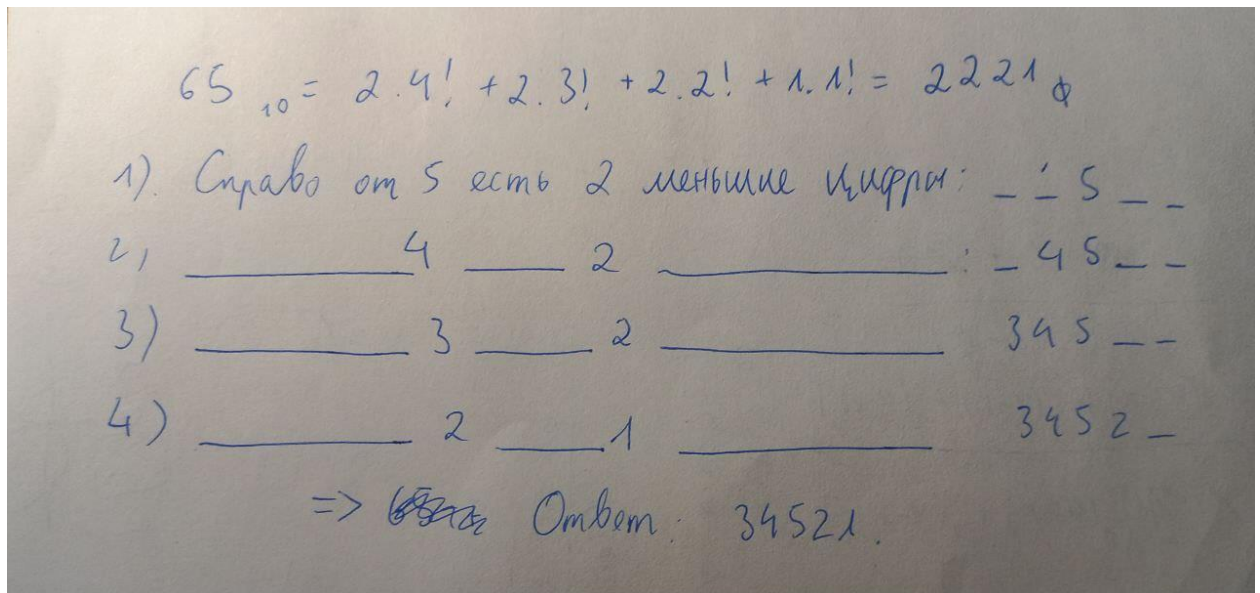 65₁₀ = 2.4! + 2.3! + 2.2! + 1.1! = 2221ф
1). Справо от 5 есть 2 меньшие цифры: _ _ 5 _ _
2) ____ 4 ____ 2 ____ : _ 4 5 _ _
3) ____ 3 ____ 2 ____ 3 4 5 _ _
4) ____ 2 ____ 1 ____ 3 4 5 2 _
=> Ответ: 34521.